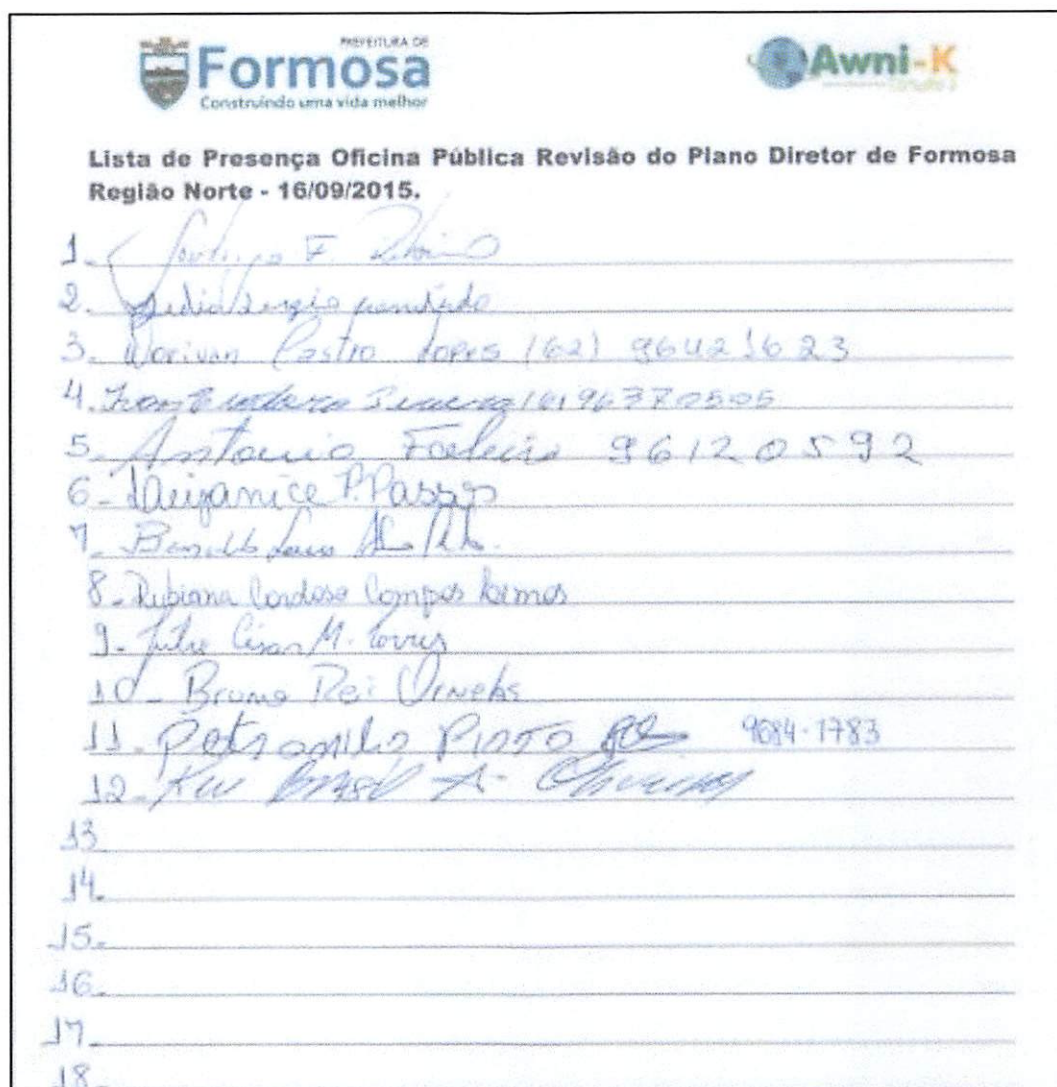 PREFEITURA DE
Formosa
Construindo uma vida melhor
Awni-K
Lista de Presença Oficina Pública Revisão do Plano Diretor de Formosa
Região Norte - 16/09/2015.
1- F.
2-
3- Dorivan Castro Lopes (62) 96421623
4. 96370505
5- Antonio 96120592
6- P. Passos
7-
8- Rubiana Cardoso Campos Lemos
9- Julio Cesar M. Torres
10- Bruno Rei Ornelas
11- Petronilio Pinto 9684-1783
12- Brasil A. Oliveira
13
14.
15-
16-
17-
18-